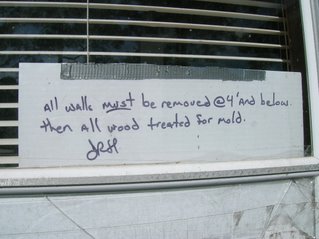 All walls must be removed @ 4' And below.
then all wood treated for mold.